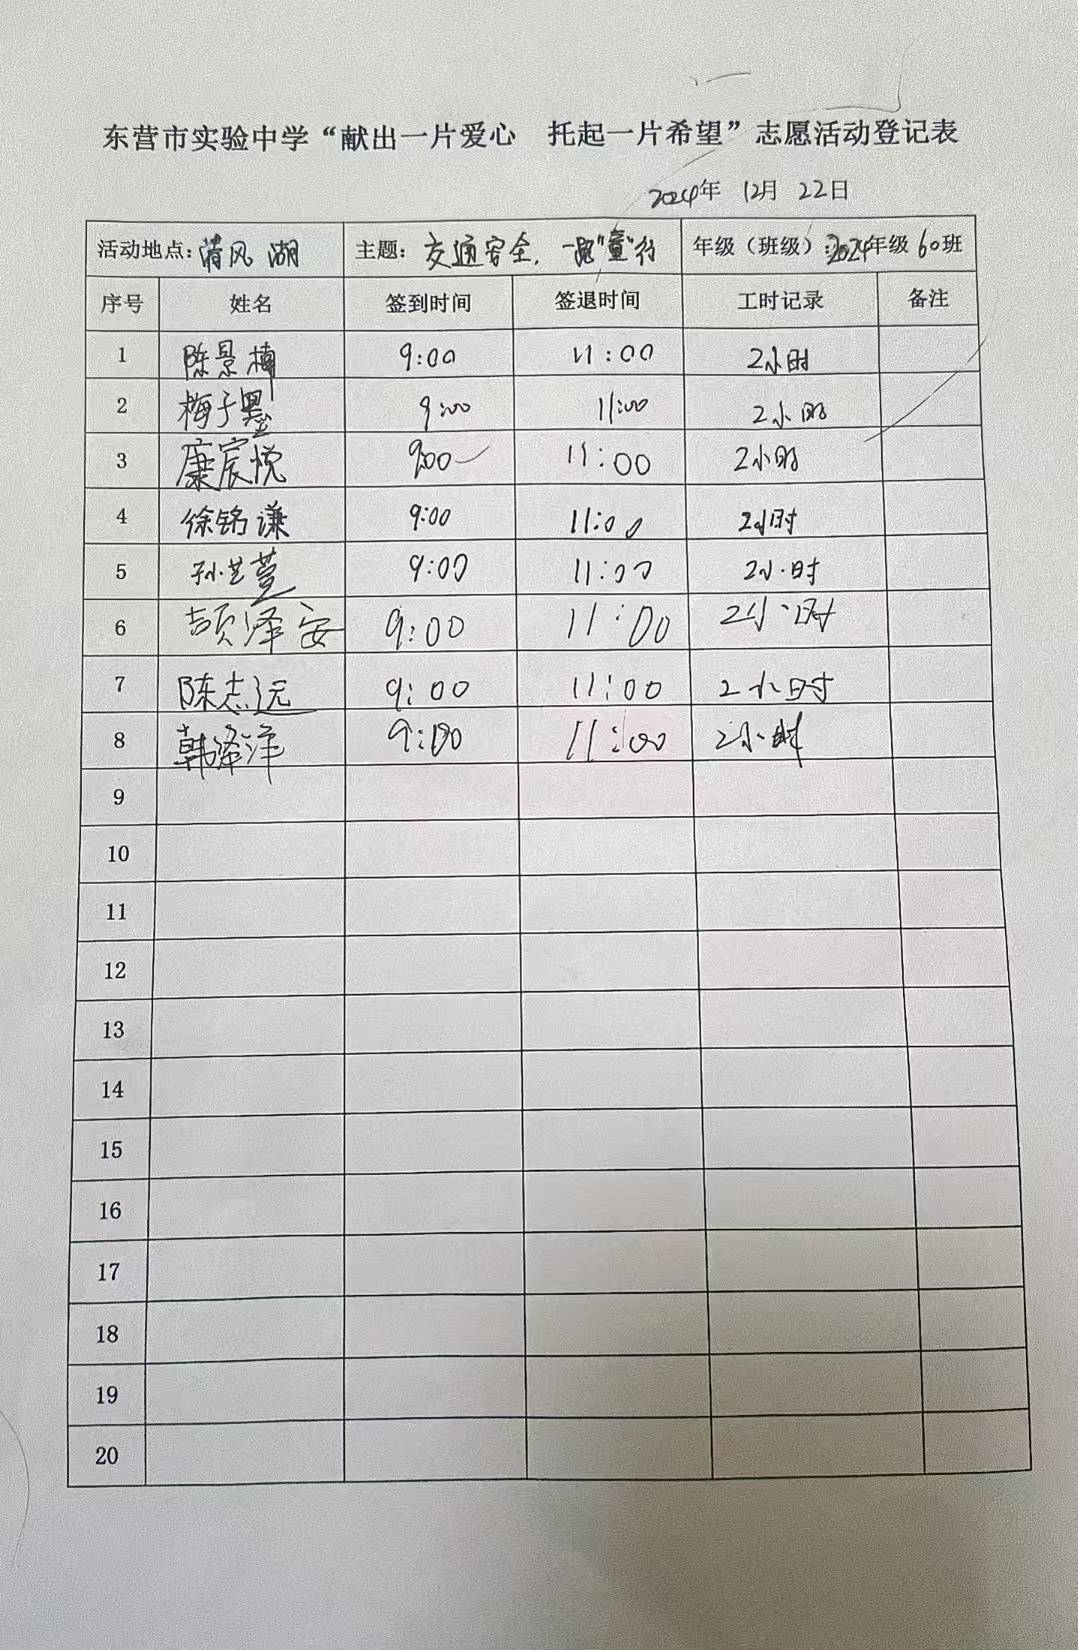 东营市实验中学“献出一片爱心 托起一片希望”志愿活动登记表
2024年 12月 22日
活动地点：清风湖 主题：交通安全，一路“童”行 年级（班级）：2024年级60班
序号 姓名 签到时间 签退时间 工时记录 备注
1 陈景楠 9:00 11:00 2小时
2 梅子墨 9:00 11:00 2小时
3 康宸悦 900 11:00 2小时
4 徐铭谦 9:00 11:00 2小时
5 孙艺萱 9:00 11:00 2小时
6 颉泽安 9:00 11:00 2小时
7 陈志远 9:00 11:00 2小时
8 韩泽洋 9:00 11:00 2小时
9
10
11
12
13
14
15
16
17
18
19
20